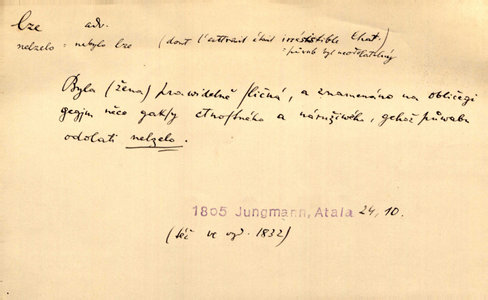 lze adv.
nelzelo = nebylo lze (dont l'attrait était irrésistible Chat.)
půvab byl neodolatelný
Byla (žena) prawidelně sličná, a znamenáno na obličegi
gegjm něco gaksy ctnostného a náružiwého, gehož půwabu
odolati nelzelo.
1805 Jungmann, Atala 24, 10.
(též ve vyd. 1832)